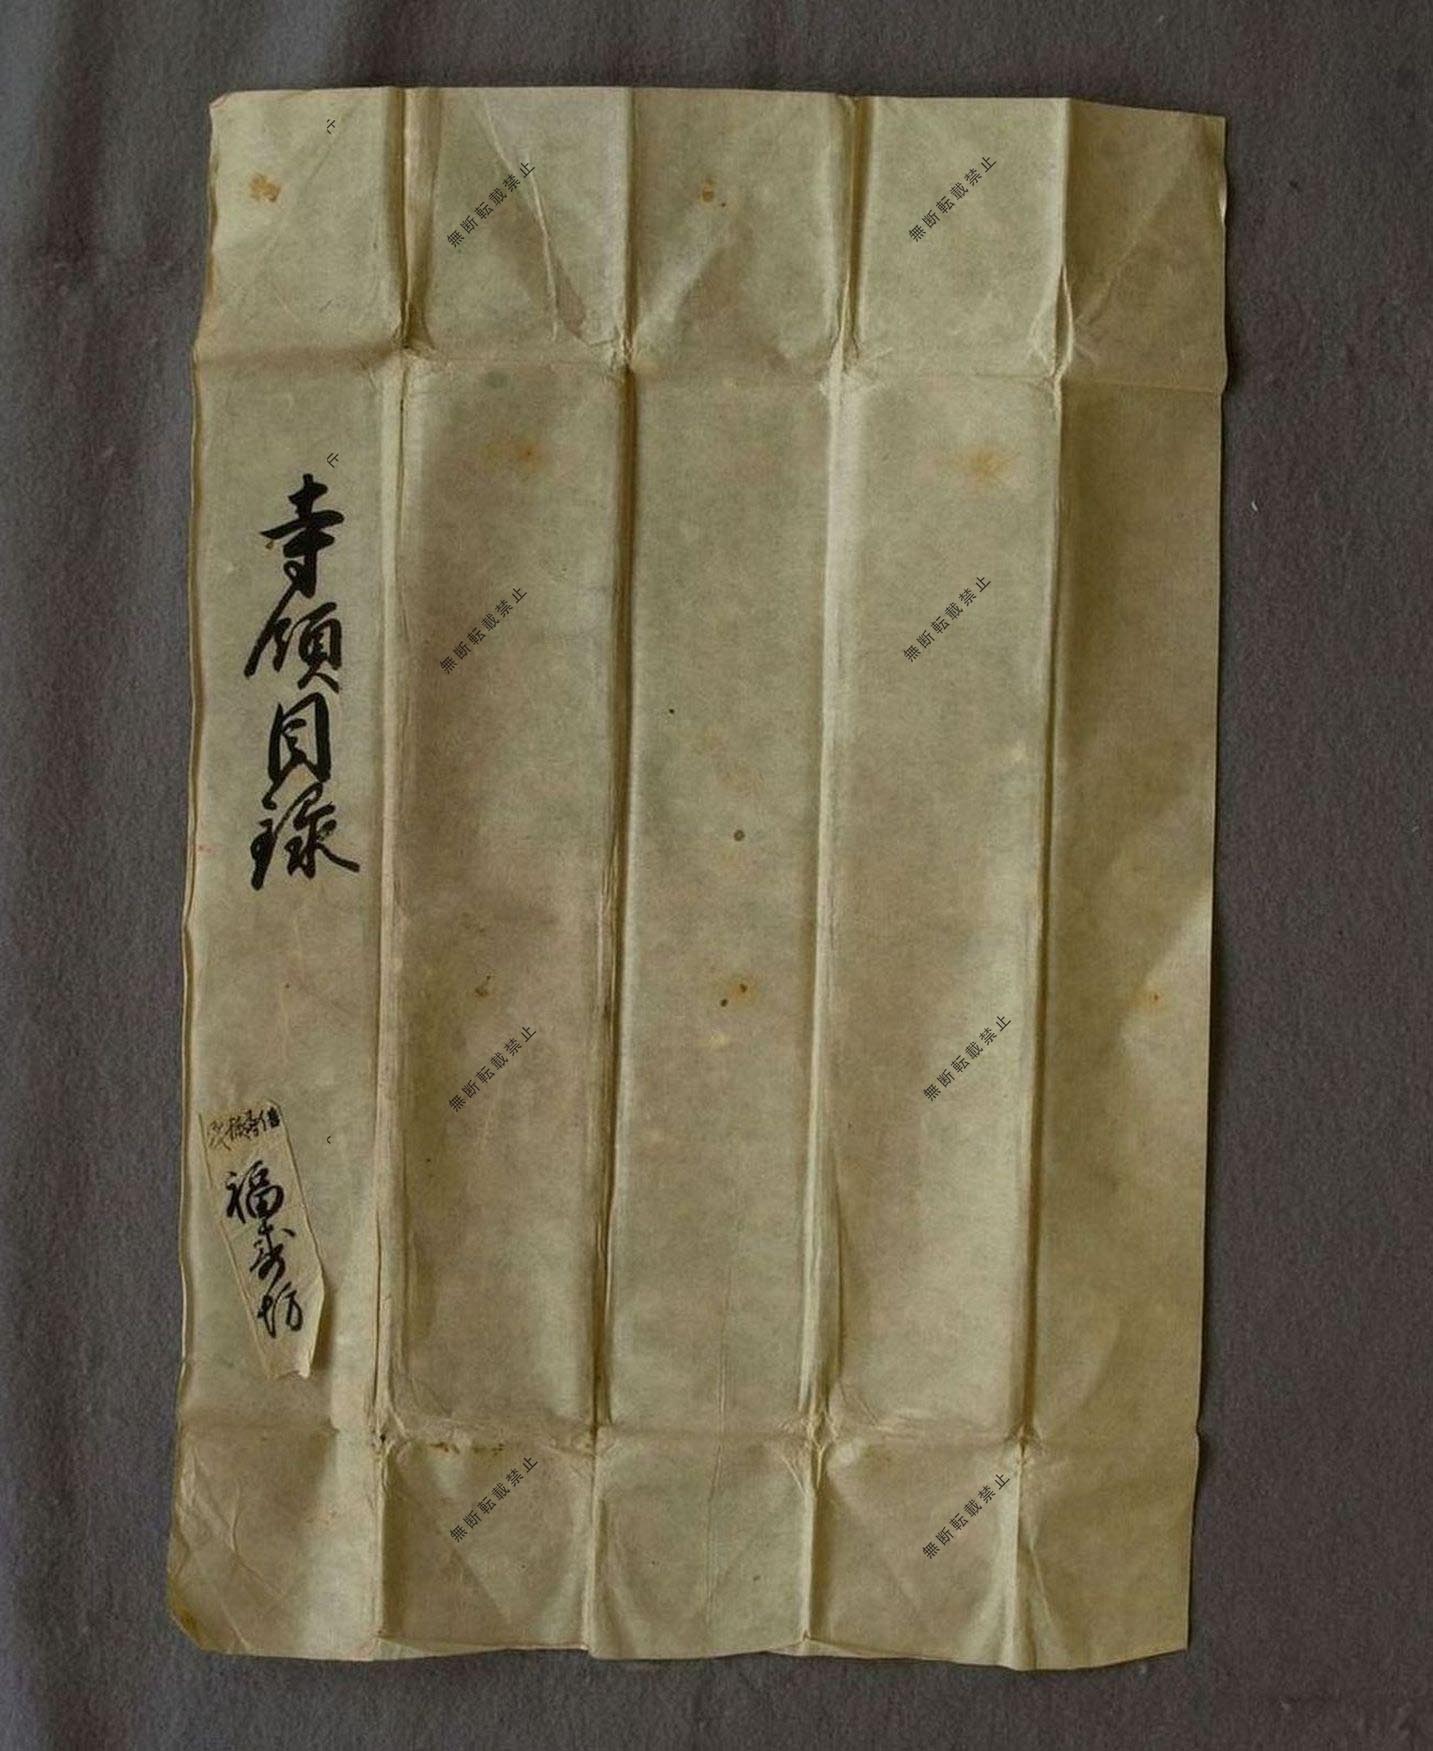 寺領目録
福寿坊
無断転載禁止
無断転載禁止
無断転載禁止
無断転載禁止
無断転載禁止
無断転載禁止
無断転載禁止
無断転載禁止